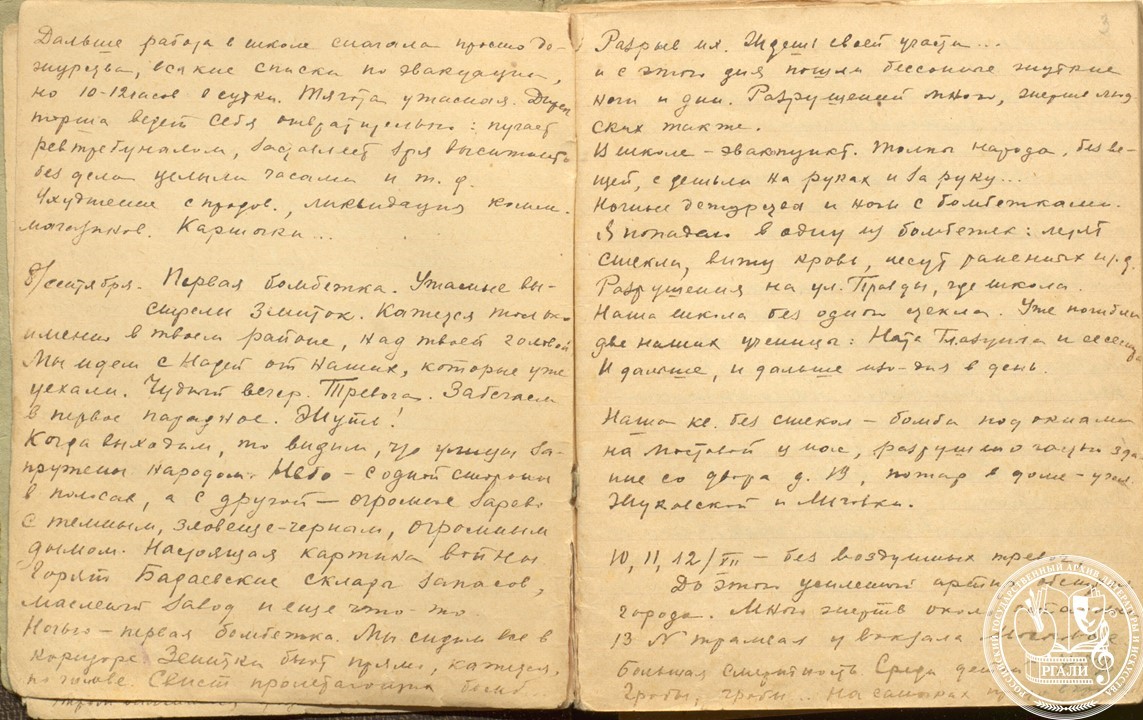 Дальше работа в школе сначала просто де-
журства, всякие списки по эвакуации,
но 10-12 часов в сутки. Тягота ужасная. Дирек
торша ведет себя отвратительно: пугает
ревтребуналом, заставляет зря высиживать
без дела целыми часами и т. д.
Ухудшение с продов., ликвидация комм.
магазинов. Карточки...
8/сентября. Первая бомбежка. Ужасные вы-
стрелы Зениток. Кажется только
именно в твоем районе, над твоей головой
Мы идем с Надей от наших, которые уже
уехали. Чудный вечер. Тревога. Забегаем
в первое парадное. Жуть!
Когда выходим, то видим, что улицы за-
пружены народом. Небо – с одной стороны
в полосах, а с другой – огромное зарево
с темным, зловеще-черным, огромным
дымом. Настоящая картина войны
Горят Бадаевские склады запасов,
масленый завод и еще что-то.
Ночью – первая бомбежка. Мы сидим все в
коридоре. Зенитки бьют прямо, кажется,
по голове. Свист пролетающих бомб
3
Разрыв их. Ждешь своей участи...
и с этого дня пошли бессонные жуткие
ночи и дни. Разрушений много, жертв люд
ских также.
В школе – эвакпункт. Толпы народа, без ве-
щей, с детьми на руках и за руку...
Ночные дежурства и ночи с бомбежками.
Я попадаю в одну из бомбежек: летят
стекла, вижу кровь, несут раненных и т. д.
Разрушения на ул. Правды, где школа.
Наша школа без одного стекла. Уже погибли
две наших ученицы: Ната
И дальше, и дальше изо-дня в день.
Наша кв. без стекол – бомба под окнами
на мостовой у нас, разрушило часть зда-
ние со двора д. 13, пожар в доме – угол
Жуковской и Лиговки.
10, 11, 12/XII – без воздушных тревог
До этого усиленный артил. обстрел
города. Много жертв около
13 N трамвая у вокзала
Большая смертность Среди
Гробы, гробы... На саночках
РОССИЙСКИЙ ГОСУДАРСТВЕННЫЙ АРХИВ ЛИТЕРАТУРЫ И ИСКУССТВА
РГАЛИ